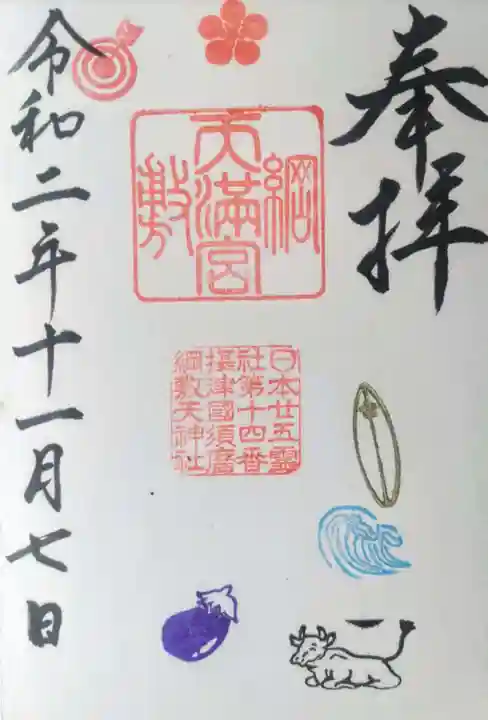 奉拝
綱
天満宮
敷
日本廿五霊
社第十四番
摂津國須磨
綱敷天神社
令和二年十一月七日